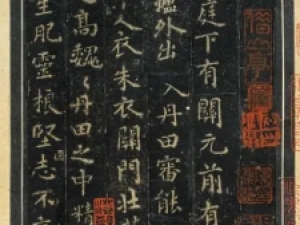 庭下有關元前有
廬外出入丹田審能
人衣朱衣關門壯
高魏〻丹田之中精
生肥靈根堅志不